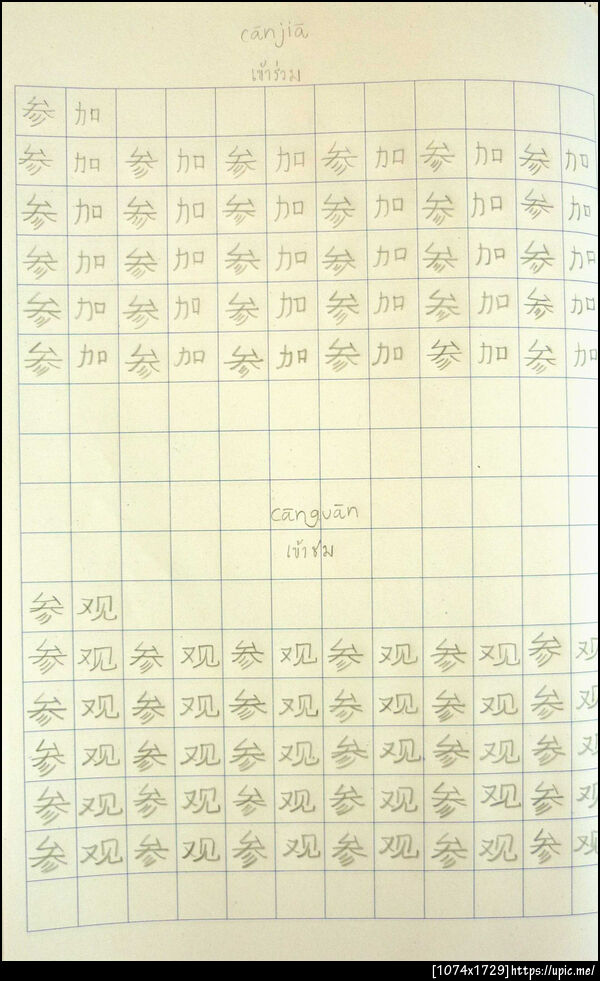 cānjiā
เข้าร่วม
参 加
参 加 参 加 参 加 参 加 参 加 参 加
参 加 参 加 参 加 参 加 参 加 参 加
参 加 参 加 参 加 参 加 参 加 参 加
参 加 参 加 参 加 参 加 参 加 参 加
参 加 参 加 参 加 参 加 参 加 参 加
cānguān
เข้าชม
参 观
参 观 参 观 参 观 参 观 参 观 参 观
参 观 参 观 参 观 参 观 参 观 参 观
参 观 参 观 参 观 参 观 参 观 参 观
参 观 参 观 参 观 参 观 参 观 参 观
参 观 参 观 参 观 参 观 参 观 参 观
[1074x1729]https://upic.me/